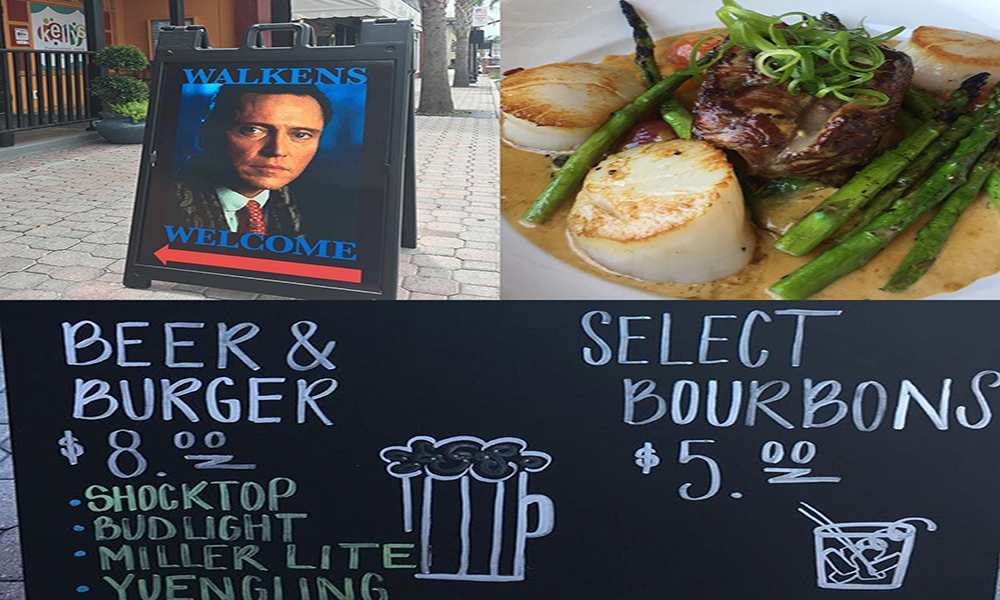 kellys
WALKENS
WELCOME
BEER &
BURGER
$8.00
• SHOCKTOP
• BUD LIGHT
• MILLER LITE
• YUENGLING
SELECT
BOURBONS
$5.00